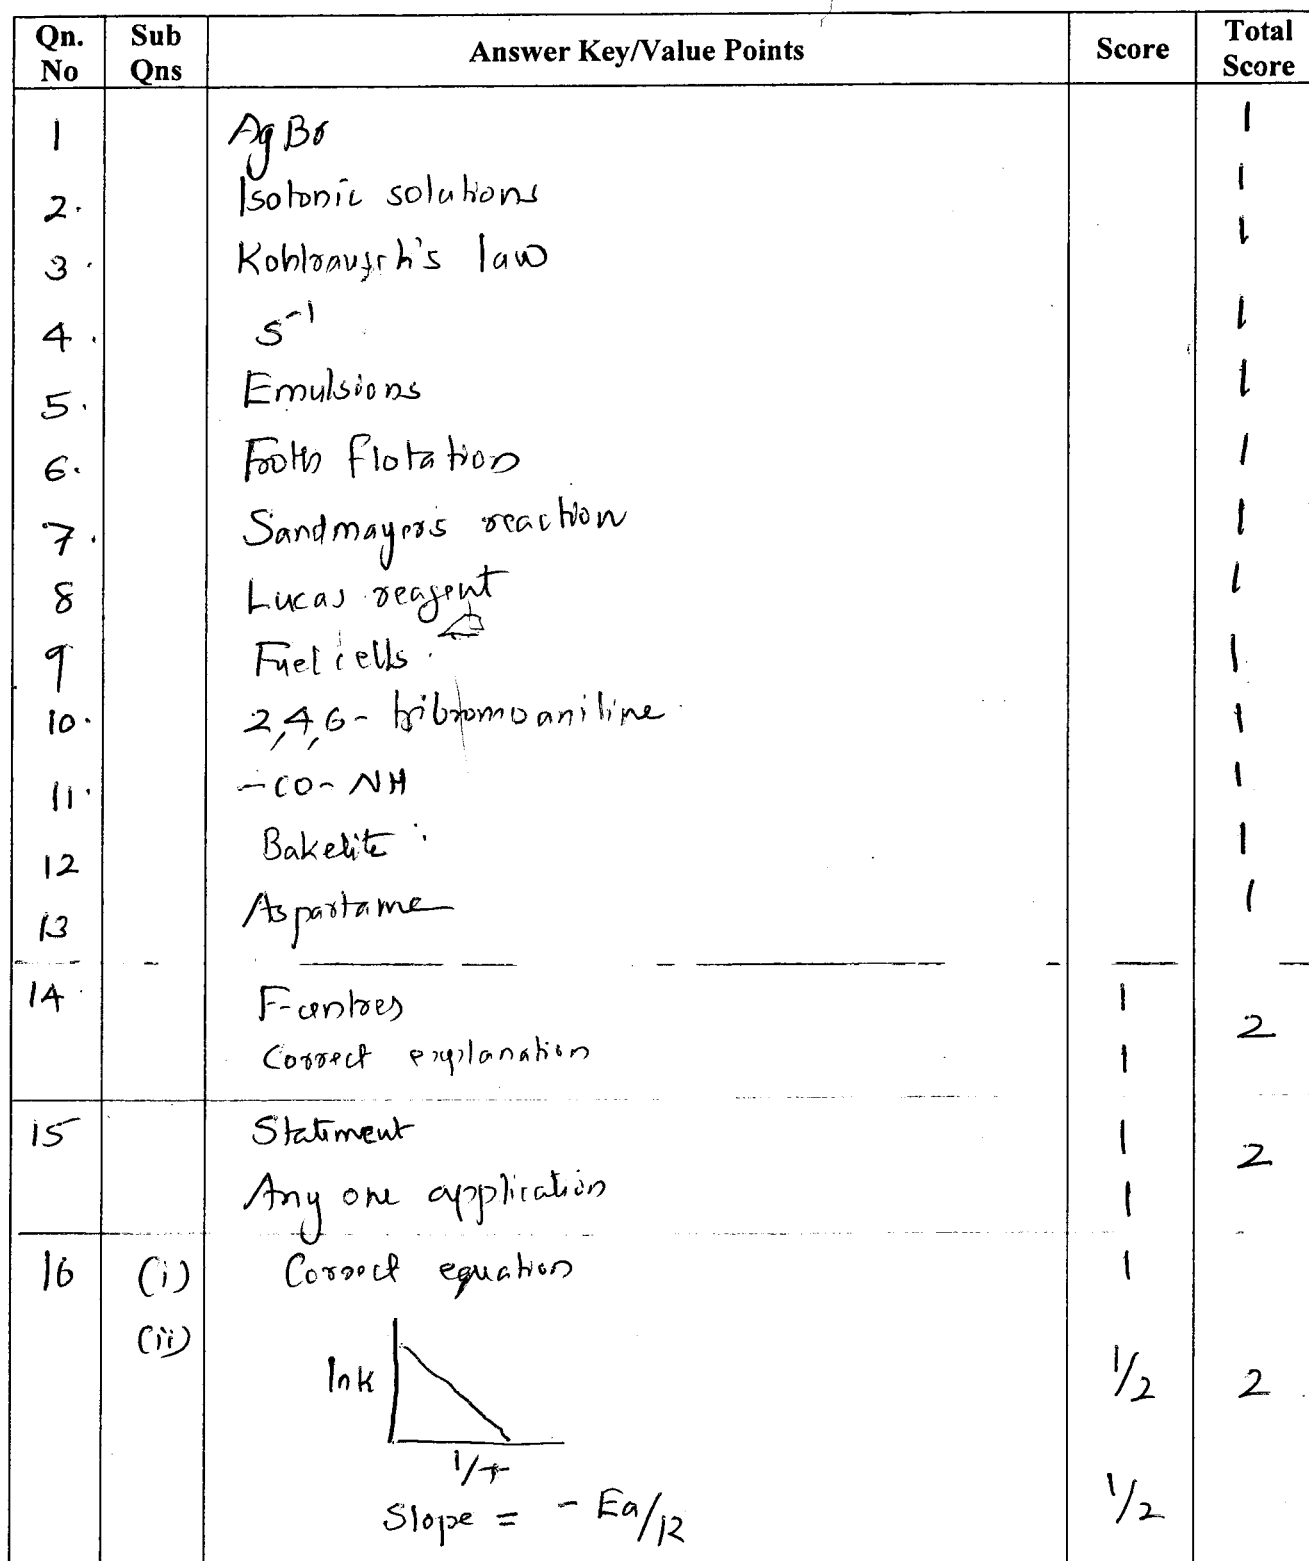 Qn. No Sub Qns Answer Key/Value Points Score Total Score
1 AgBr 1
2. Isotonic solutions 1
3. Kohlrausch's law 1
4. s⁻¹ 1
5. Emulsions 1
6. Froth flotation 1
7. Sandmayers reaction 1
8 Lucas reagent 1
9 Fuel cells. 1
10. 2,4,6- tribromoaniline 1
11. -CO-NH 1
12 Bakelite 1
13 Aspartame 1
14 F-centres 1
Correct explanation 1 2
15 Statement 1
Any one application 1 2
16 (i) Correct equation 1
(ii) ln k 1/2 2
1/T
Slope = - Ea/R 1/2